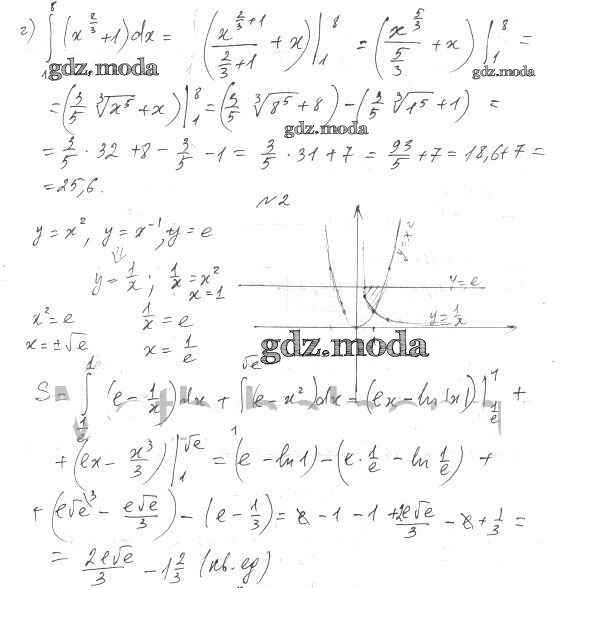 г) ∫₁⁸ (x^(2/3) + 1) dx = (x^(2/3+1) / (2/3+1) + x) |₁⁸ = (x^(5/3) / (5/3) + x) |₁⁸ =
gdz.moda
gdz.moda
= (3/5 ∛x⁵ + x) |₁⁸ = (3/5 ∛8⁵ + 8) − (3/5 ∛1⁵ + 1) =
gdz.moda
= 3/5 · 32 + 8 − 3/5 − 1 = 3/5 · 31 + 7 = 93/5 + 7 = 18,6 + 7 =
= 25,6.
№2
y = x², y = x⁻¹, y = e
⇓
y = 1/x ; 1/x = x²
x = 1
x² = e 1/x = e
x = ±√e x = 1/e
y = x²
y = e
y = 1/x
gdz.moda
S = ∫_(1/e)^1 (e − 1/x) dx + ∫₁^(√e) (e − x²) dx = (ex − ln|x|) |_(1/e)^1 +
+ (ex − x³/3) |₁^(√e) = (e − ln 1) − (e · 1/e − ln 1/e) +
+ (e√e − e√e/3) − (e − 1/3) = e − 1 − 1 + 2e√e/3 − e + 1/3 =
= 2e√e/3 − 1 2/3 (кв. ед)